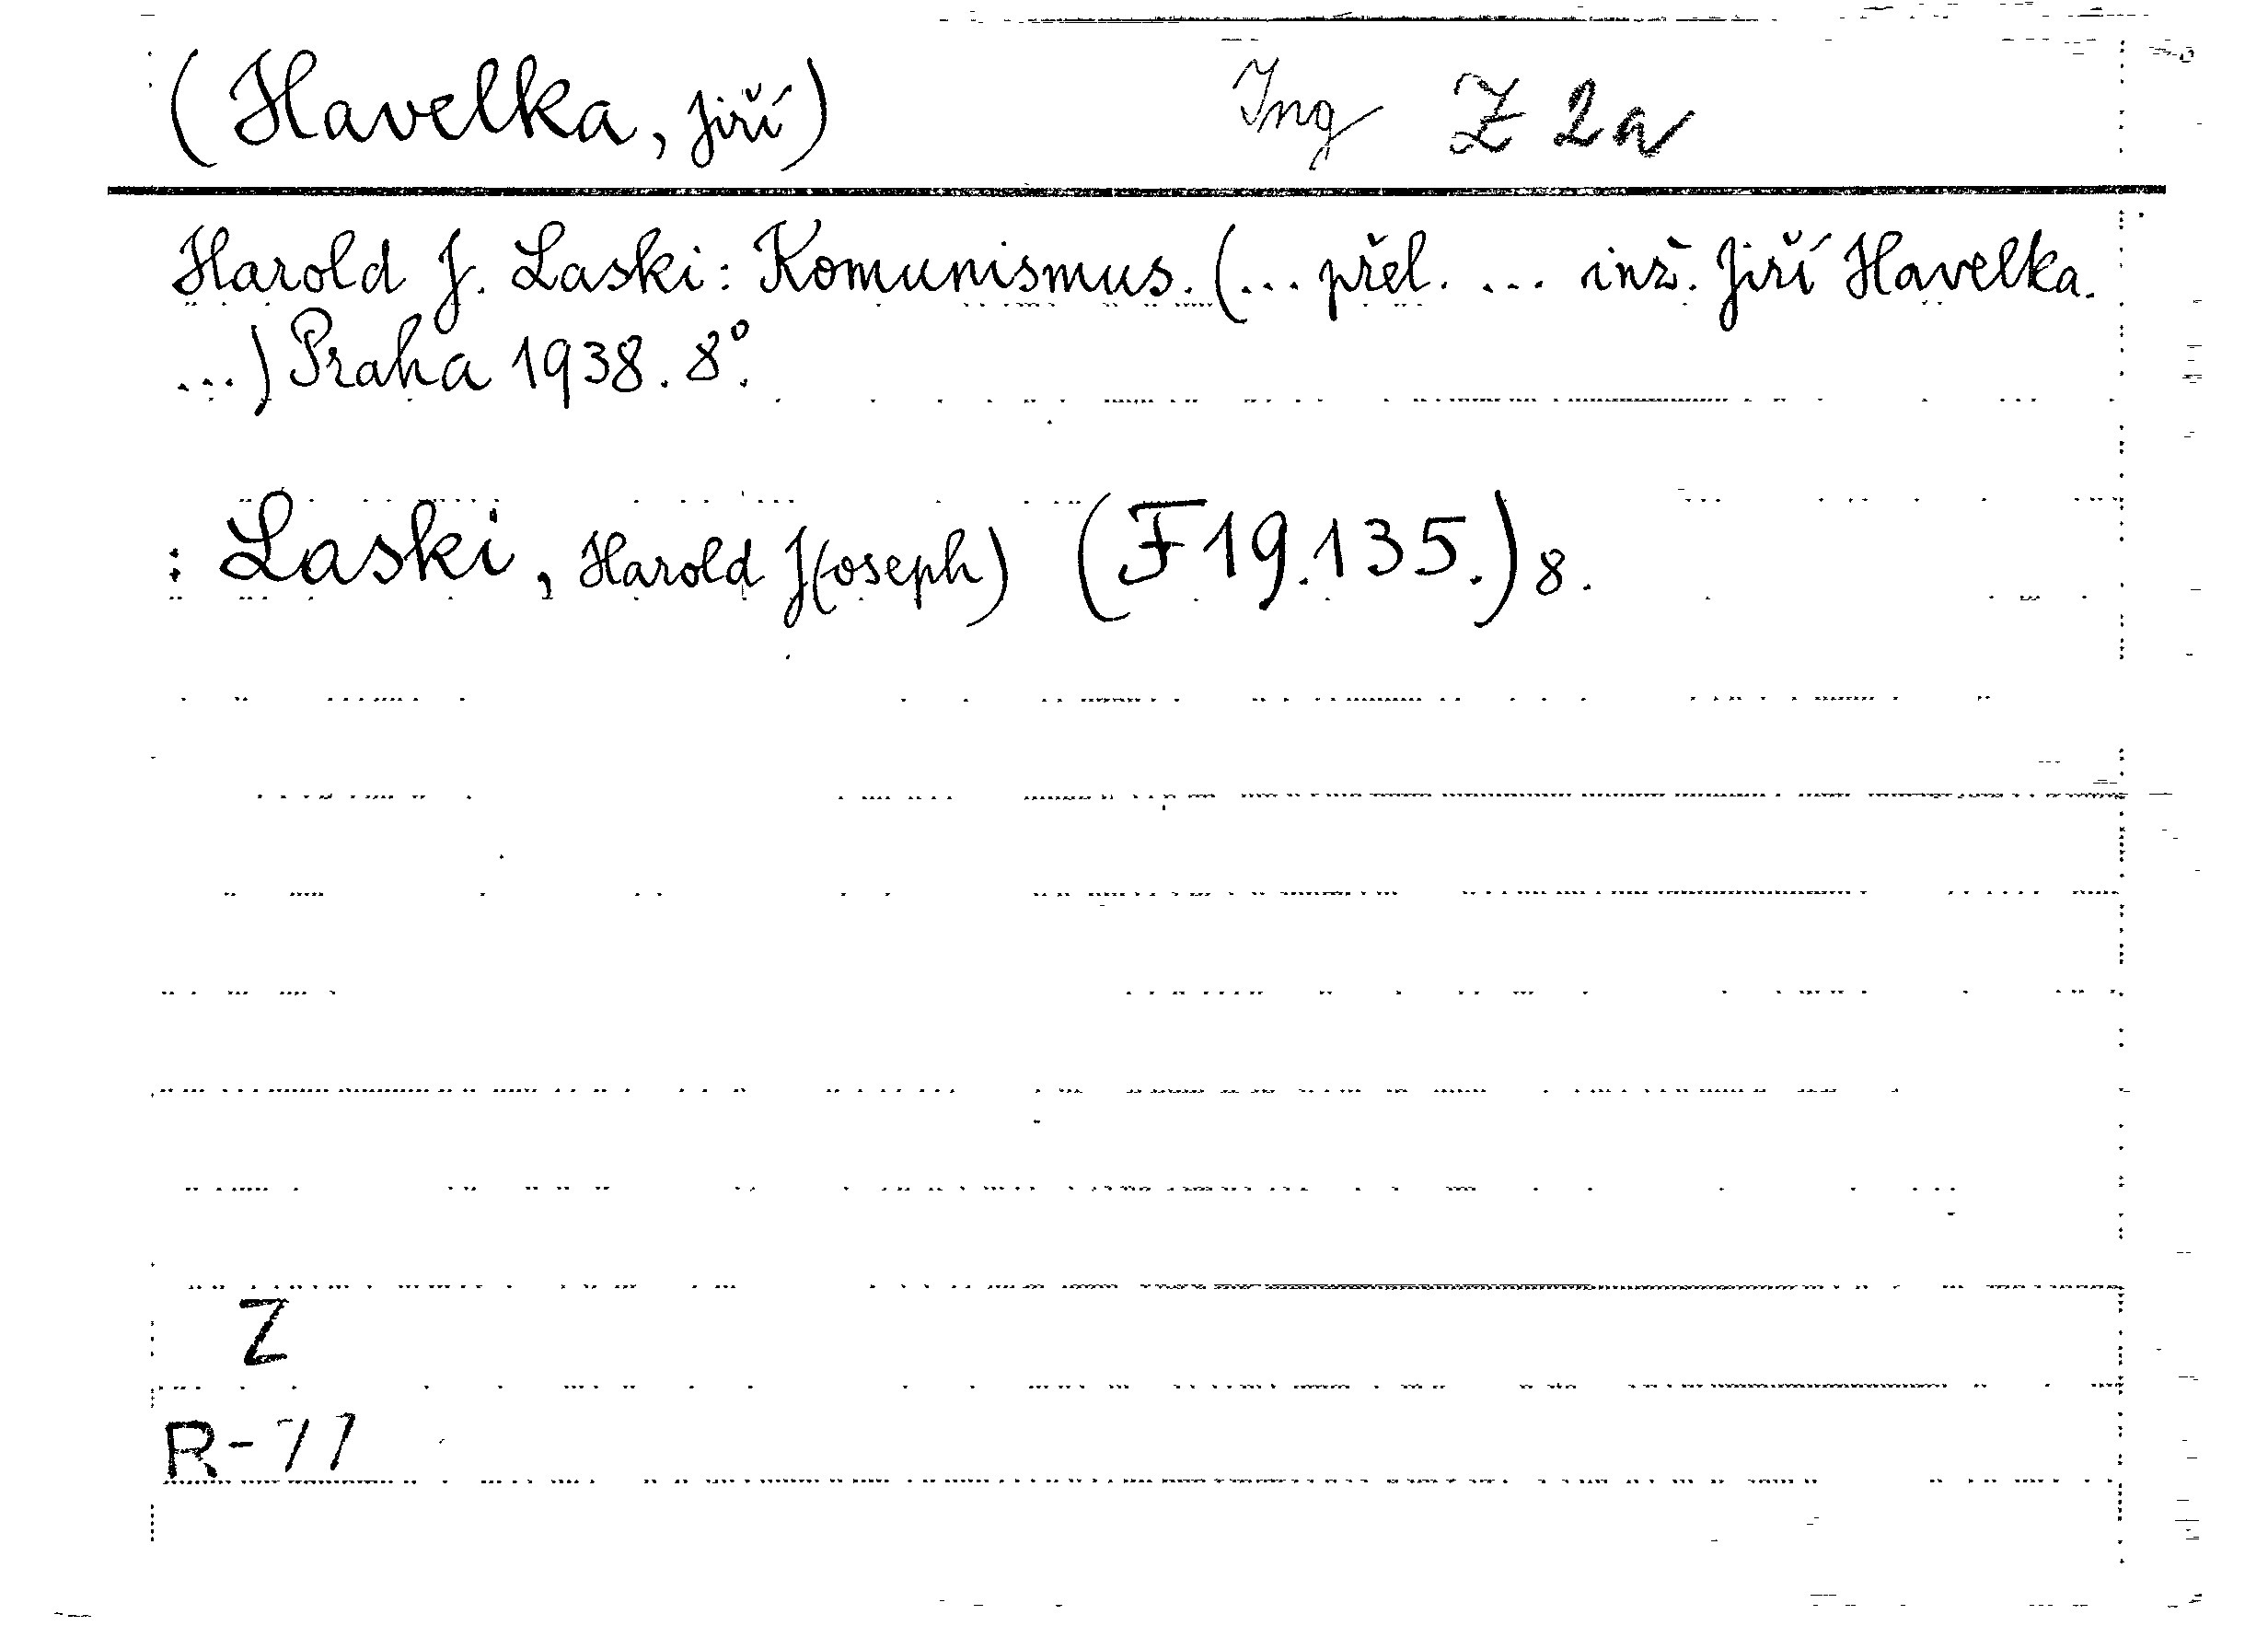 (Havelka, Jiří) Ing Z 2a
Harold J. Laski: Komunismus. (... přel. ... inž. Jiří Havelka.
...) Praha 1938. 8°.
: Laski, Harold J(oseph) (F 19.135.) 8.
Z
R-77